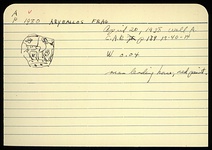 A V
P 1980 ARYBALLOS FRAG
April 28, 1935 Well A
p 189 19-40-14
W. 0.04
man leading horse, red paint.